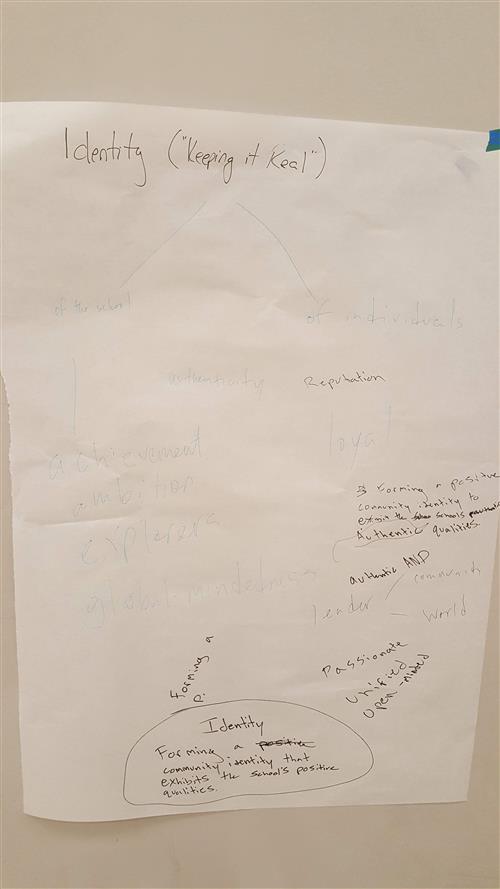 Identity ("Keeping it Real")
of the school
of individuals
authenticity
Reputation
achievement
ambition
explorers
global-mindedness
loyal
Forming a positive
community identity to
the schools
Authentic qualities.
authentic AND
leader
community
world
Forming a
P.
Passionate
Unified
Open-minded
Identity
Forming a positive
community identity that
exhibits the school's positive
qualities.